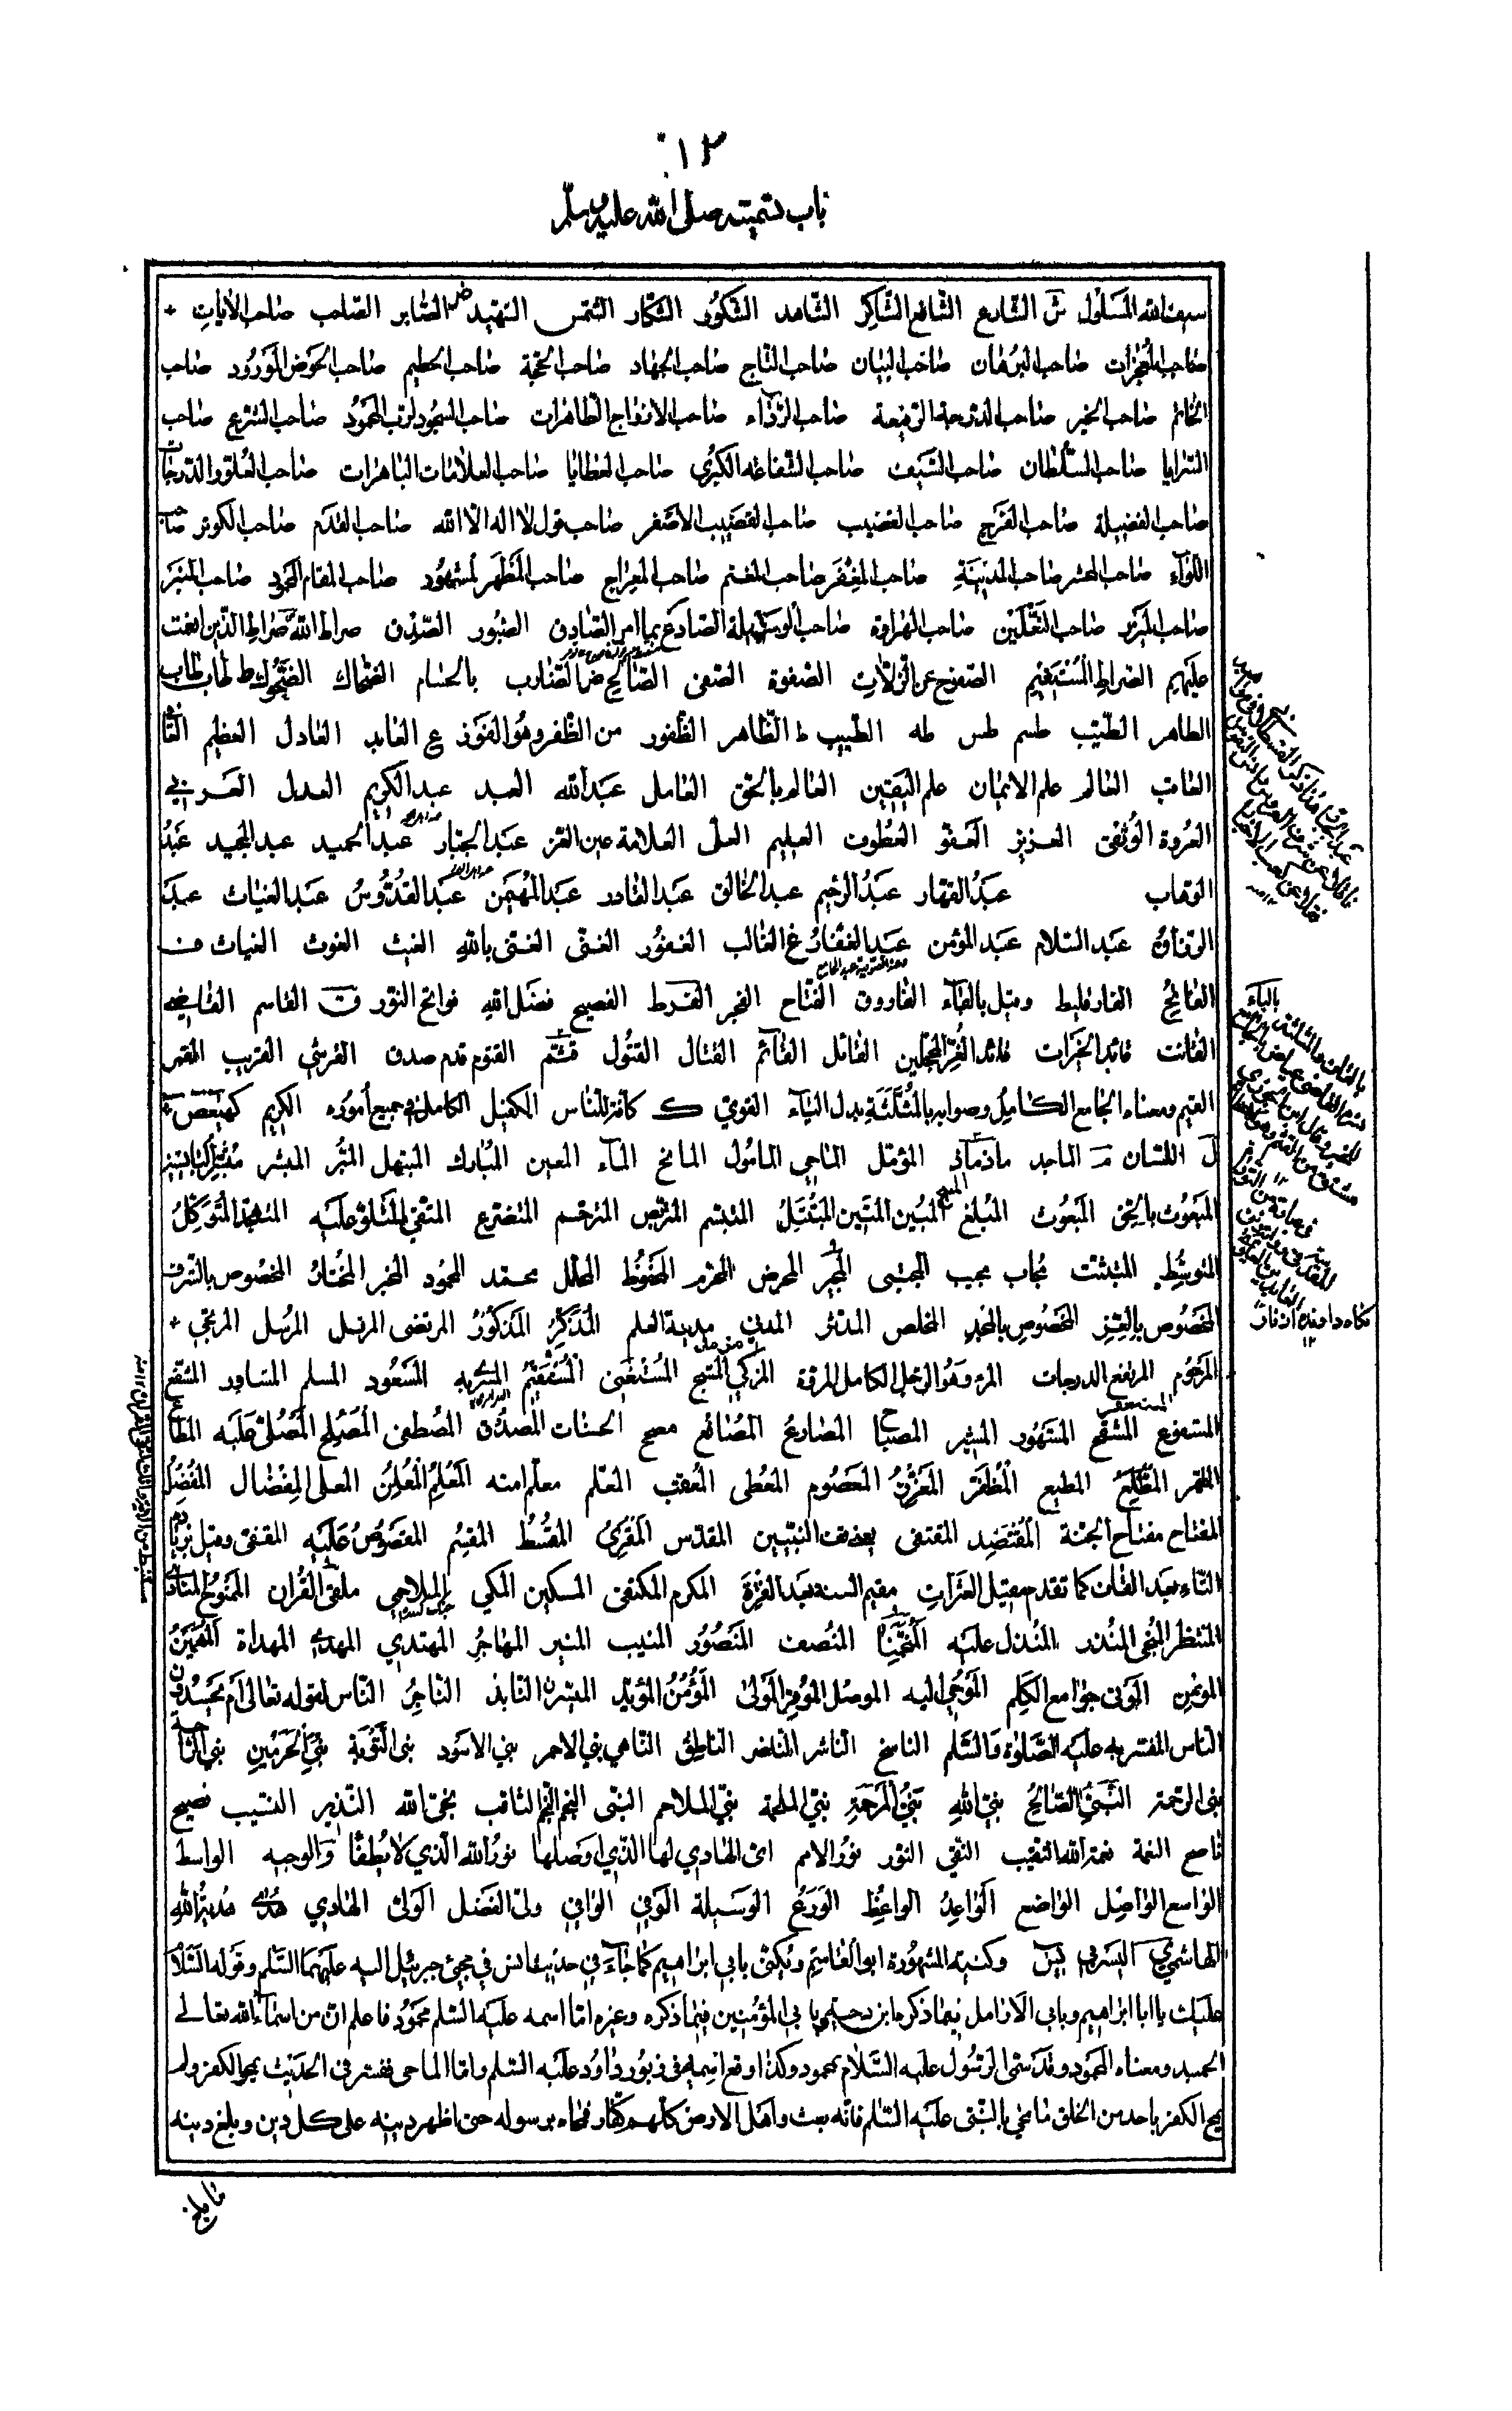 ١٣
باب تسميته صلى الله عليه وسلم
سيف الله المسلول ش الشارع الشافع الشاكر الشاهد الشكور الشكار الشمس الشهيد ص الصابر الصاحب صاحب الآيات
صاحب المعجزات صاحب البرهان صاحب البيان صاحب التاج صاحب الجهاد صاحب الحجة صاحب الحطيم صاحب الحوض المورود صاحب
الخاتم صاحب الخير صاحب الدرجة الرفيعة صاحب الرداء صاحب الازواج الطاهرات صاحب السجود لرب المحمود صاحب الشرع صاحب
السرايا صاحب السلطان صاحب السيف صاحب الشفاعة الكبرى صاحب العطايا صاحب العلامات الباهرات صاحب العلو والدرجات
صاحب الفضيلة صاحب الفرج صاحب القضيب صاحب القضيب الاصغر صاحب قول لا اله الا الله صاحب القدم صاحب الكوثر صاحب
اللواء صاحب المحشر صاحب المدينة صاحب المغفر صاحب المغنم صاحب المعراج صاحب المظهر المشهود صاحب المقام المحمود صاحب المنبر
صاحب المئزر صاحب النعلين صاحب الهراوة صاحب الوسيلة الصادع بما امر الصادق الصبور الصدق صراط الله صراط الذين انعمت
عليهم الصراط المستقيم الصفوح عن الزلات الصفوة الصفي الصالح ض الضارب بالحسام الضحاك الضحوك ط طاب طاب
الطاهر الطيب طسم طس طه الطبيب ظ الظاهر الظفور من الظفر وهو الفوز ع العابد العادل العظيم العافي
العاقب العالم علم الايمان علم اليقين العالم بالحق العامل عبد الله العبد عبد الكريم العدل العربي
العروة الوثقى العزيز العفو العطوف العليم العلي العلامة عين العز عبد الجبار عبد الحميد عبد المجيد عبد
الوهاب عبد القهار عبد الرحيم عبد الخالق عبد القادر عبد المهيمن عبد القدوس عبد الغياث عبد
الرزاق عبد السلام عبد المؤمن عبد الغفار غ الغالب الغفور الغني الغني بالله الغيث الغوث الغياث ف
الفاتح الفارقليط وقيل بالباء الفاروق الفتاح الفجر الفرط الفصيح فضل الله فواتح النور ق القاسم القاضي
القانت قائد الخيرات قائد الغر المحجلين القائل القائم القتال القتول قثم القثوم قدم صدق القرشي القريب القمر
القيم ومعناه الجامع الكامل وصوابه بالمثلثة بدل الياء القوي ك كافة للناس الكفيل الكامل في جميع أموره الكريم كهيعص
ل اللسان م الماجد ماذماذ المؤمل الماحي المامول المانح الماء المعين المبارك المبتهل المبر المبشر
المبعوث بالحق المبعوث المبلغ المبين المتين المتبتل المتبسم المتربص المترحم المتضرع المتقي المتلو عليه المتهجد المتوكل
المتوسط المتثبت مجاب مجيب المجتبى المجير المحرض المحرم المحفوظ المحلل محمد المحمود المخبر المختار المخصوص بالشرف
المخصوص بالعز المخصوص بالمجد المخلص المدثر المدني مدينة العلم المذكر المذكور المرتضى المرتل المرسل المرتجى
المرحوم المرتفع الدرجات المرء وهو الرجل الكامل المروة المزكي المسبح المستغفر المستغني المستقيم المسعود المسلم المشاور المشفع
المشفوع المشفح المشهود المشير المصباح المصارع المصافح مصحح الحسنات المصدق المصطفى المصلح المصلى عليه المطاع
المطهر المطلع المطيع المظفر المعزز المعصوم المعطي المعقب المعلم معلم امته المعلم المعلن المعلى المفضال المفضل
المفتاح مفتاح الجنة المقتصد المقتفي يعني قفى النبيين المقدس المقرئ المقسط المقسم المقصوص عليه المقفى وقيل بزيادة
التاء بعد القاف كما تقدم مقيل العثرات مقيم السنة بعد الفترة المكرم المكتفي المسكين المكي الملاحمي ملقى القرآن الممنوح المنادي
المنتظر المنجي المنذر المنزل عليه المنحمنا المنصف المنصور المنيب المنير المهاجر المهتدي المهدي المهداة المهيمن
المؤتمن المؤتى جوامع الكلم الموحى اليه الموصل الموقر المولى المؤمن المؤيد الميسر ن النابذ الناجز الناس لقوله تعالى أم يحسدون
الناس المفسر به عليه الصلوة والسلم الناسخ الناشر الناصر الناطق الناهي نبي الاحمر نبي الاسود نبي التوبة نبي الحرمين نبي الراحة
نبي الرحمة النبي الصالح نبي الله نبي المرحمة نبي الملحمة نبي الملاحم النبي النجم النجم الثاقب نجي الله النذير النسيب نصيح
ناصح النعمة نعمة الله النقيب النقي النور نور الامم اى الهادي لها الذي اوصلها نور الله الذي لا يطفأ و الوجيه الواسط
الواسع الواصل الواضع الواعد الواعظ الورع الوسيلة الوفي الوافي ولي الفضل الولي الهادي هدى هدية الله
الهاشمي ى اليثربي يس وكنيته المشهورة ابو القاسم ويكنى بابي ابراهيم كما جاء في حديث انس في مجئ جبرئيل اليه عليهما السلم وقوله السلام
عليك يا ابا ابراهيم وبابي الارامل فيما ذكره ابن دحية وبابي المؤمنين فيما ذكره وغيره اما اسمه عليه السلم محمود فاعلم ان من اسماء الله تعالى
الحميد ومعناه المحمود وقد سمى الرسول عليه السلام بمحمود وكذا وقع اسمه في زبور داود عليه السلم واما الماحي ففسر في الحديث بمحو الكفر ولم
يمح الكفر باحد من الخلق ما محي بالنبي عليه السلم فانه بعث واهل الارض كلهم كفار فمحاه برسوله حتى اظهر دينه على كل دين وبلغ دينه
ما بلغ